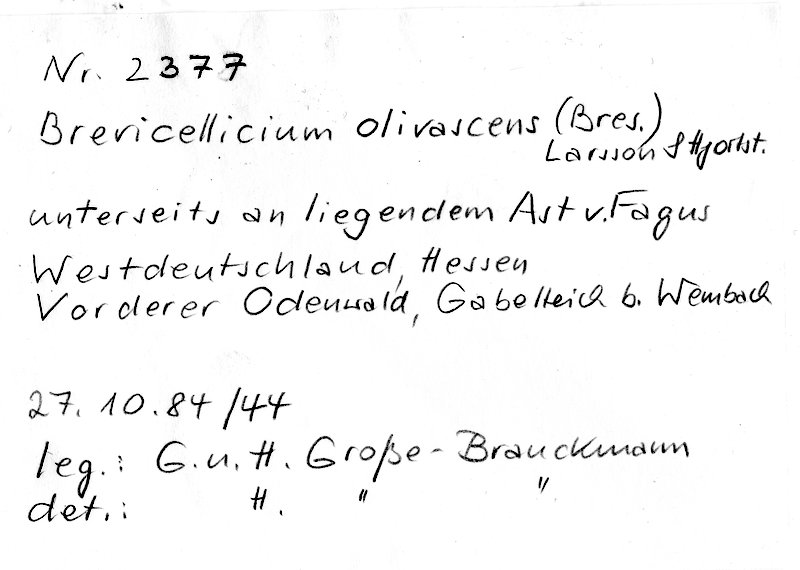 Nr. 2377
Brevicellicium olivascens (Bres.)
Larsson & Hjortst.
unterseits an liegendem Ast v. Fagus
Westdeutschland, Hessen
Vorderer Odenwald, Gabelteich b. Wembach
27. 10. 84 /44
leg.: G. u. H. Große-Brauckmann
det.: H. " "